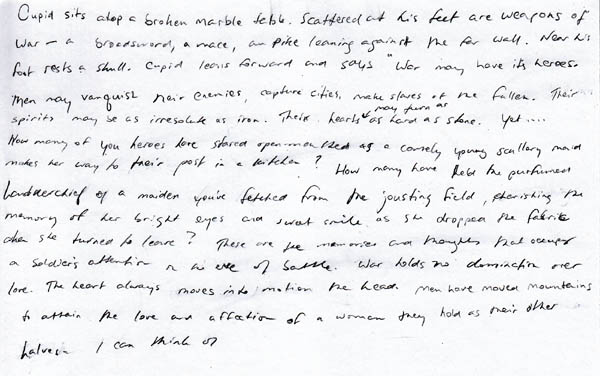 Cupid sits atop a broken marble table. Scattered at his feet are weapons of
war – a broadsword, a mace, an pike leaning against the far wall. Near his
foot rests a skull. Cupid leans forward and says "War may have its heroes.
Men may vanquish their enemies, capture cities, make slaves of the fallen. Their
spirits may be as irresolute as iron. Their hearts may turn as hard as stone. Yet ....
How many of you heroes have stared open-mouthed as a comely young scullery maid
makes her way to their post in a kitchen? How many have held the perfumed
handkerchief of a maiden you've fetched from the jousting field, cherishing the
memory of her bright eyes and sweet smile as she dropped the fabric
when she turned to leave? These are the memories and thoughts that occupy
a soldier's attention on the eve of battle. War holds no domination over
love. The heart always moves into motion the head. Men have moved mountains
to attain the love and affection of a woman they hold as their other
halves. I can think of